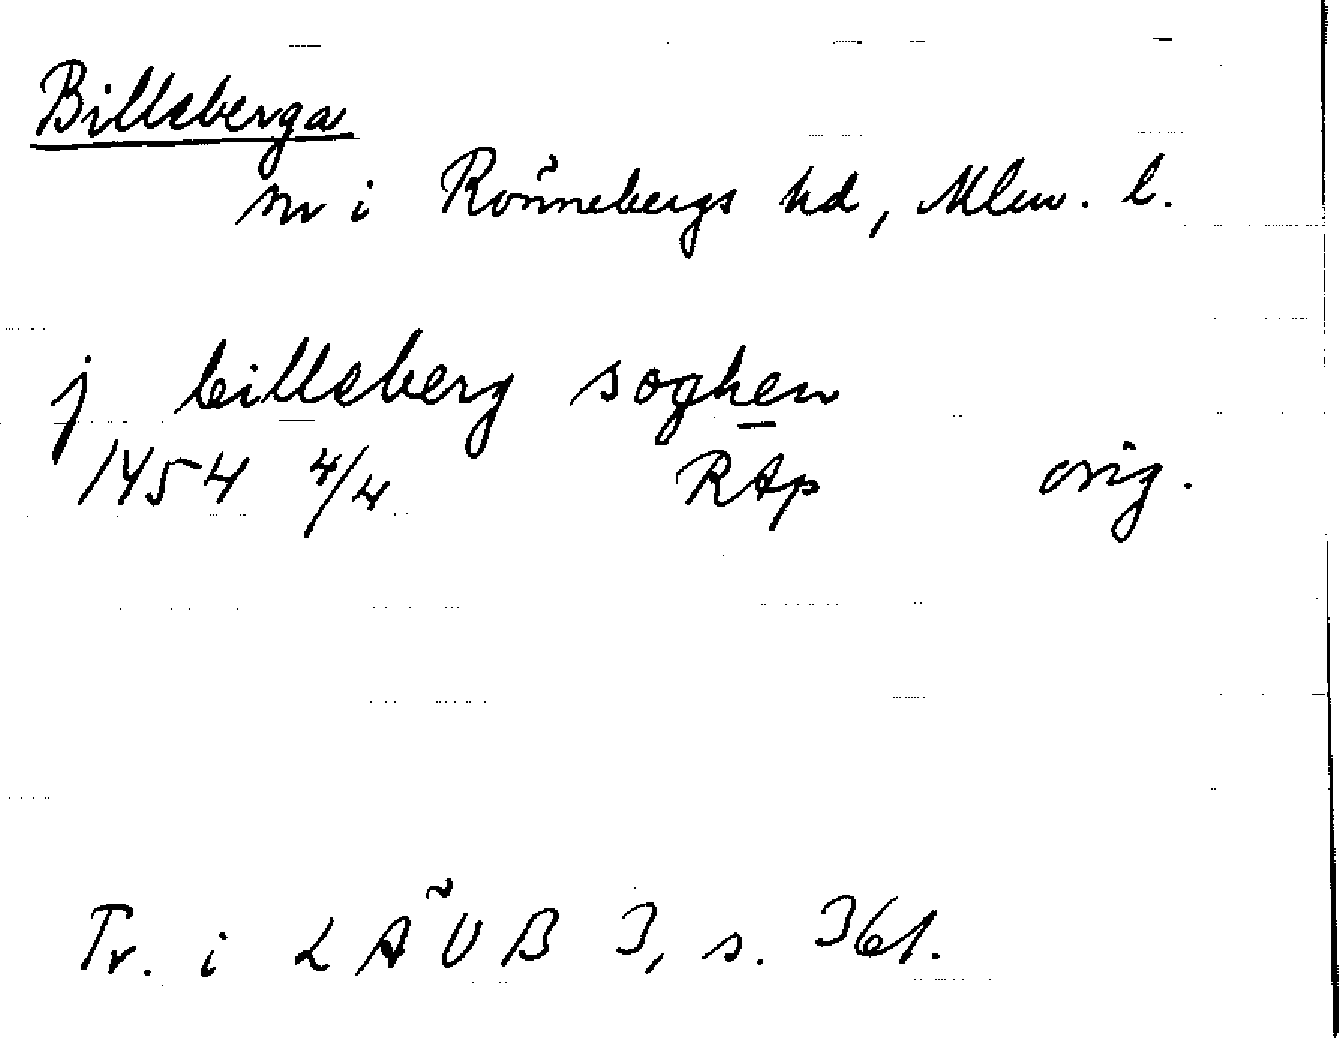 Billeberga
sn i Rönnebergs hd, Mlm. l.
j billeberg soghen
1454 4/4 RAp orig.
Tr. i LÄUB 3, s. 361.